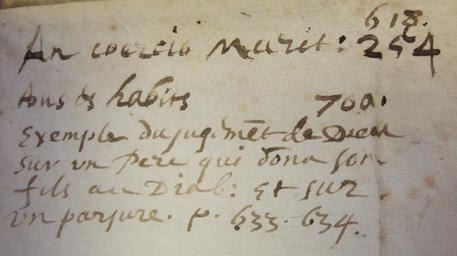 618.
An coercio Marit: 254
tous es habits 700.
Exemple du jugmēt de Dieu
sur vn Pere qui dōna son
fils au Diab: Et sur
vn parjure. p. 633. 634.